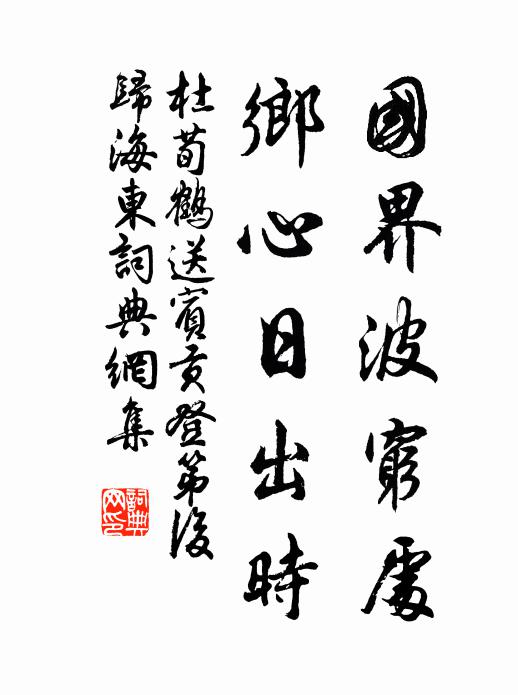 國界波窮處
鄉心日出時
杜荀鶴送賓貢登第後
歸海東詞典網集
詞典
网印